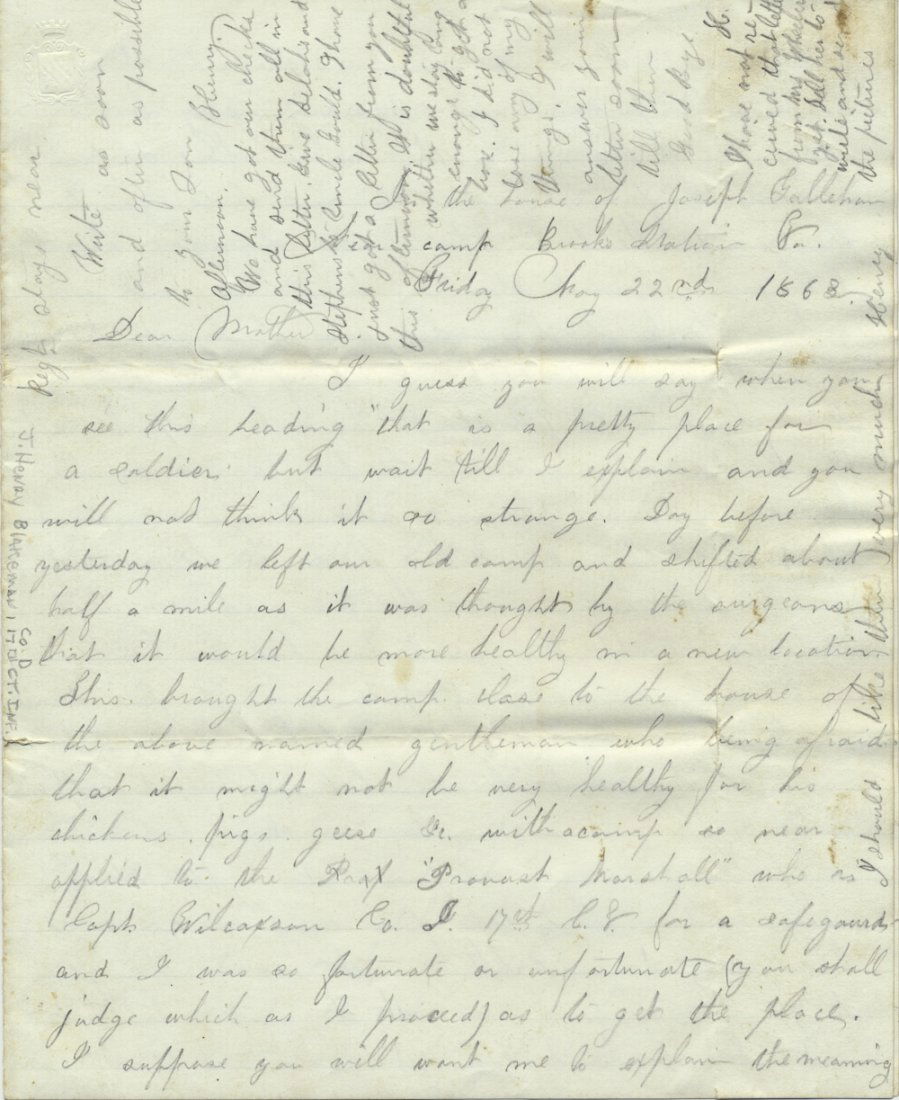 the house of Joseph Gallehan
camp Brooks Station Va.
Friday May 22nd 1863
Dear Mother
I guess you will say when you
see this heading "that is a pretty place for
a soldier" but wait till I explain and you
will not think it so strange. Day before
yesterday we left our old camp and shifted about
half a mile as it was thought by the surgeons
that it would be more healthy in a new location
This brought the camp close to the house of
the above named gentleman who being afraid
that it might not be very healthy for his
chickens, pigs, geese &c. with a camp so near
applied to the "Provost Marshall" who is
Capt. Wilcoxson Co. I. 17th C.V. for a safeguard
and I was so fortunate or unfortunate (you shall
judge which as I proceed) as to get the place.
I suppose you will want me to explain the meaning
Reg't stays near
Write as soon
and often as possible
to your Son Henry.
Afternoon.
We have got our checks
and send them all in
this letter. Eave Selahs and
Stephens to Uncle I have
just got a letter from you
this afternoon. It is doubtful
whether we stay long
enough to get a
box. I did not
lose any of my
things. I will
answer your
letter soon
till then
Good bye
H.
I have not re-
ceived that letter
from Mrs
yet. Tell her to
write and send
the pictures
I should like them very much Henry
J. Henry Blakeman, 17th CT. INF.
Co. D